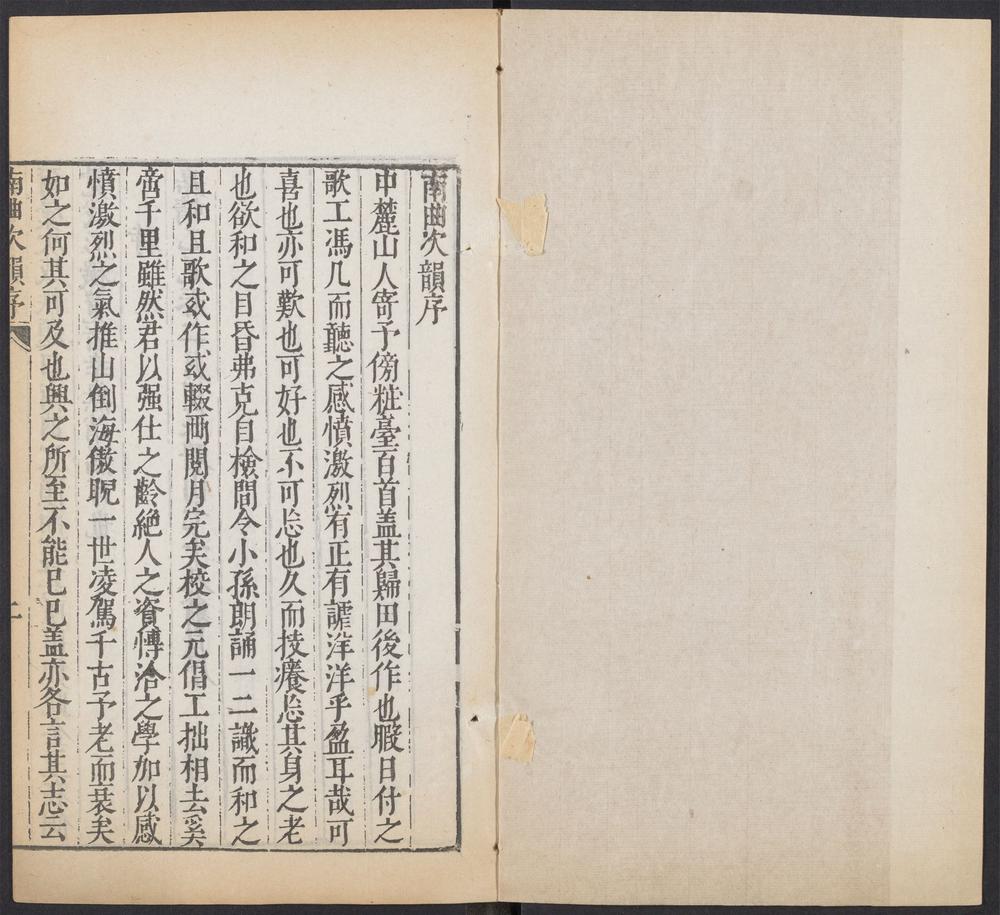 南曲次韻序
中麓山人寄予傍粧臺百首盖其歸田後作也暇日付之
歌工馮几而聽之感憤激烈有正有謔洋洋乎盈耳哉可
喜也亦可歎也可好也不可忘也久而技癢忘其身之老
也欲和之目昏弗克自檢間令小孫朗誦一二識而和之
且和且歌或作或輟兩閱月完矣校之元倡工拙相去奚
啻千里雖然君以强仕之齡絶人之資愽洽之學加以感
憤激烈之氣推山倒海傲睨一世凌駕千古予老而衰矣
如之何其可及也興之所至不能已已盖亦各言其志云
南曲次韻序